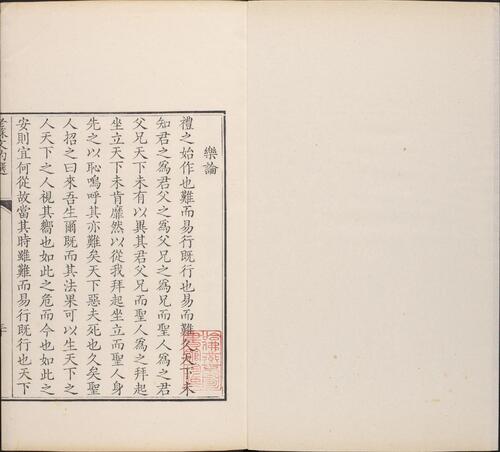 樂論
禮之始作也難而易行既行也易而難久天下未
知君之為君父之為父兄之為兄而聖人為之君
父兄天下未有以異其君父兄而聖人為之拜起
坐立天下未肯靡然以從我拜起坐立而聖人身
先之以恥嗚呼其亦難矣天下惡夫死也久矣聖
人招之曰來吾生爾既而其法果可以生天下之
人天下之人視其嚮也如此之危而今也如此之
安則宜何從故當其時雖難而易行既行也天下